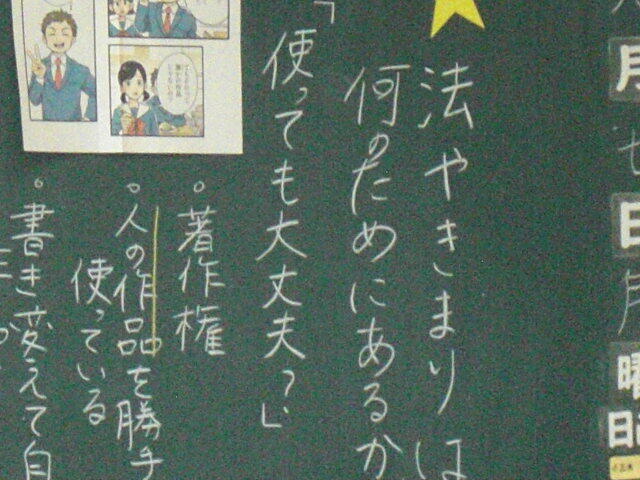 月
七
日
月
曜
日
法やきまりは
何のためにあるか
「使っても大丈夫?」
。著作権
。人の作品を勝手
使っている
。書き変えて自